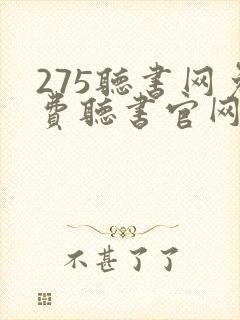 275聽書网
費聽書官网
不甚了了